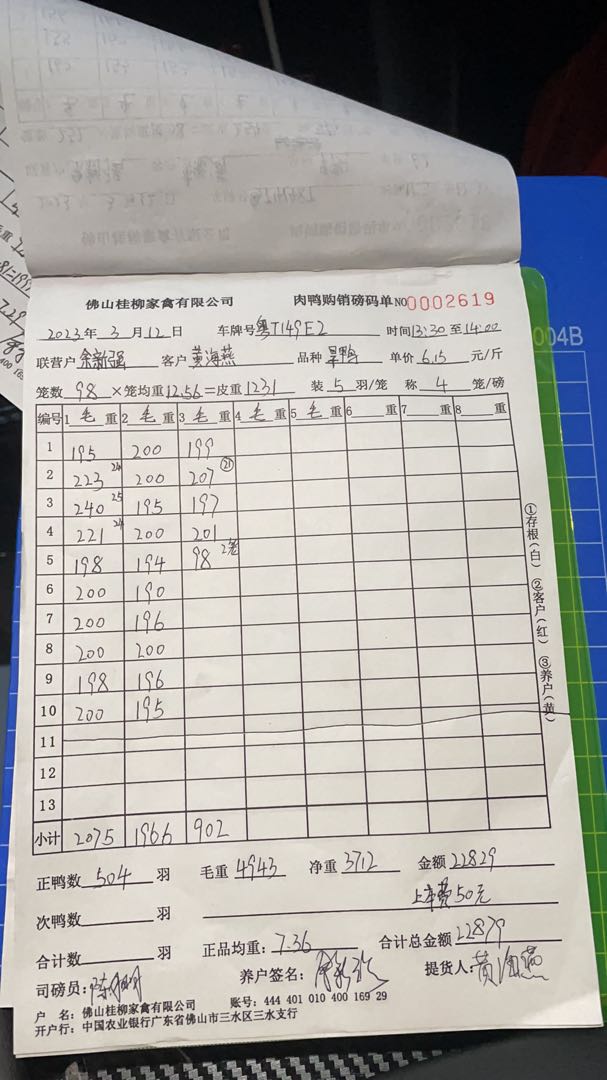 佛山桂柳家禽有限公司 肉鸭购销磅码单 NO0002619
2023年 3月12日 车牌号粤T149E2 时间13:30至14:00
联营户 余新强 客户 黄海燕 品种 旱鸭 单价 6.15 元/斤
笼数 98 ×笼均重12.56=皮重1231 装 5 羽/笼 称 4 笼/磅
编号 1 毛 重 2 毛 重 3 毛 重 4 毛 重 5 毛 重 6 重 7 重 8 重
1 195 200 199
2 223 24 200 207 21
3 240 25 195 197
4 221 24 200 201
5 198 194 98 2笼
6 200 190
7 200 196
8 200 200
9 198 196
10 200 195
11
12
13
小计 2075 1966 902
正鸭数 504 羽 毛重 4943 净重 3712 金额 22829
次鸭数 羽 上车费50元
合计数 羽 正品均重: 7.36 合计总金额 22879
司磅员: 养户签名: 提货人: 黄海燕
户 名: 佛山桂柳家禽有限公司 账号: 444 401 010 400 169 29
开户行: 中国农业银行广东省佛山市三水区三水支行
①存根(白) ②客户(红) ③养户(黄)
004B